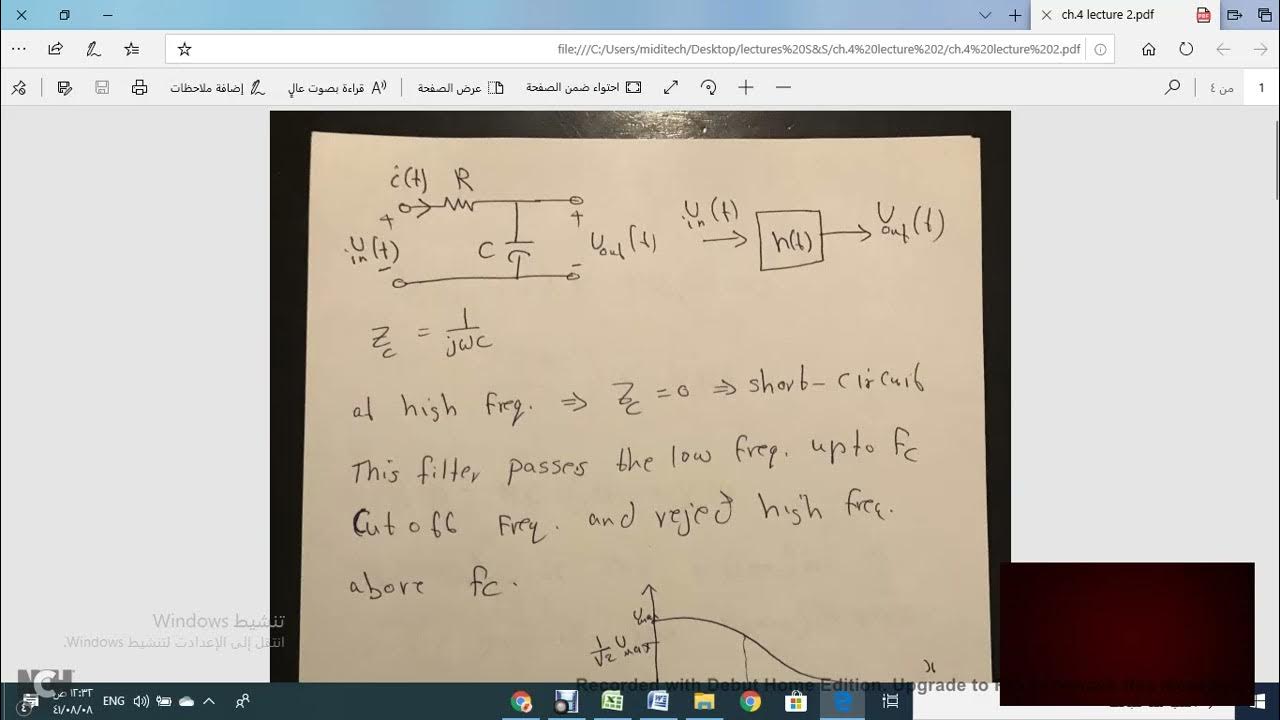 ch.4 lecture 2.pdf
file:///C:/Users/miditech/Desktop/lectures%20S&S/ch.4%20lecture%202/ch.4%20lecture%202.pdf
إضافة ملاحظات
قراءة بصوت عالٍ
عرض الصفحة
احتواء ضمن الصفحة
من ٤
1
i(t) R
+ +
Vin(t) C Vout(t)
- -
Vin(t) h(t) Vout(t)
Zc = 1/jωC
at high freq. ⇒ Zc = 0 ⇒ short-circuit
This filter passes the low freq. upto fc
Cut off Freq. and reject high freq.
above fc.
1/√2 Vmax
تنشيط Windows
انتقل إلى الإعدادات لتنشيط Windows.
NCH
Recorded with Debut Home Edition. Upgrade to
ENG
١٢:٣٣ ص